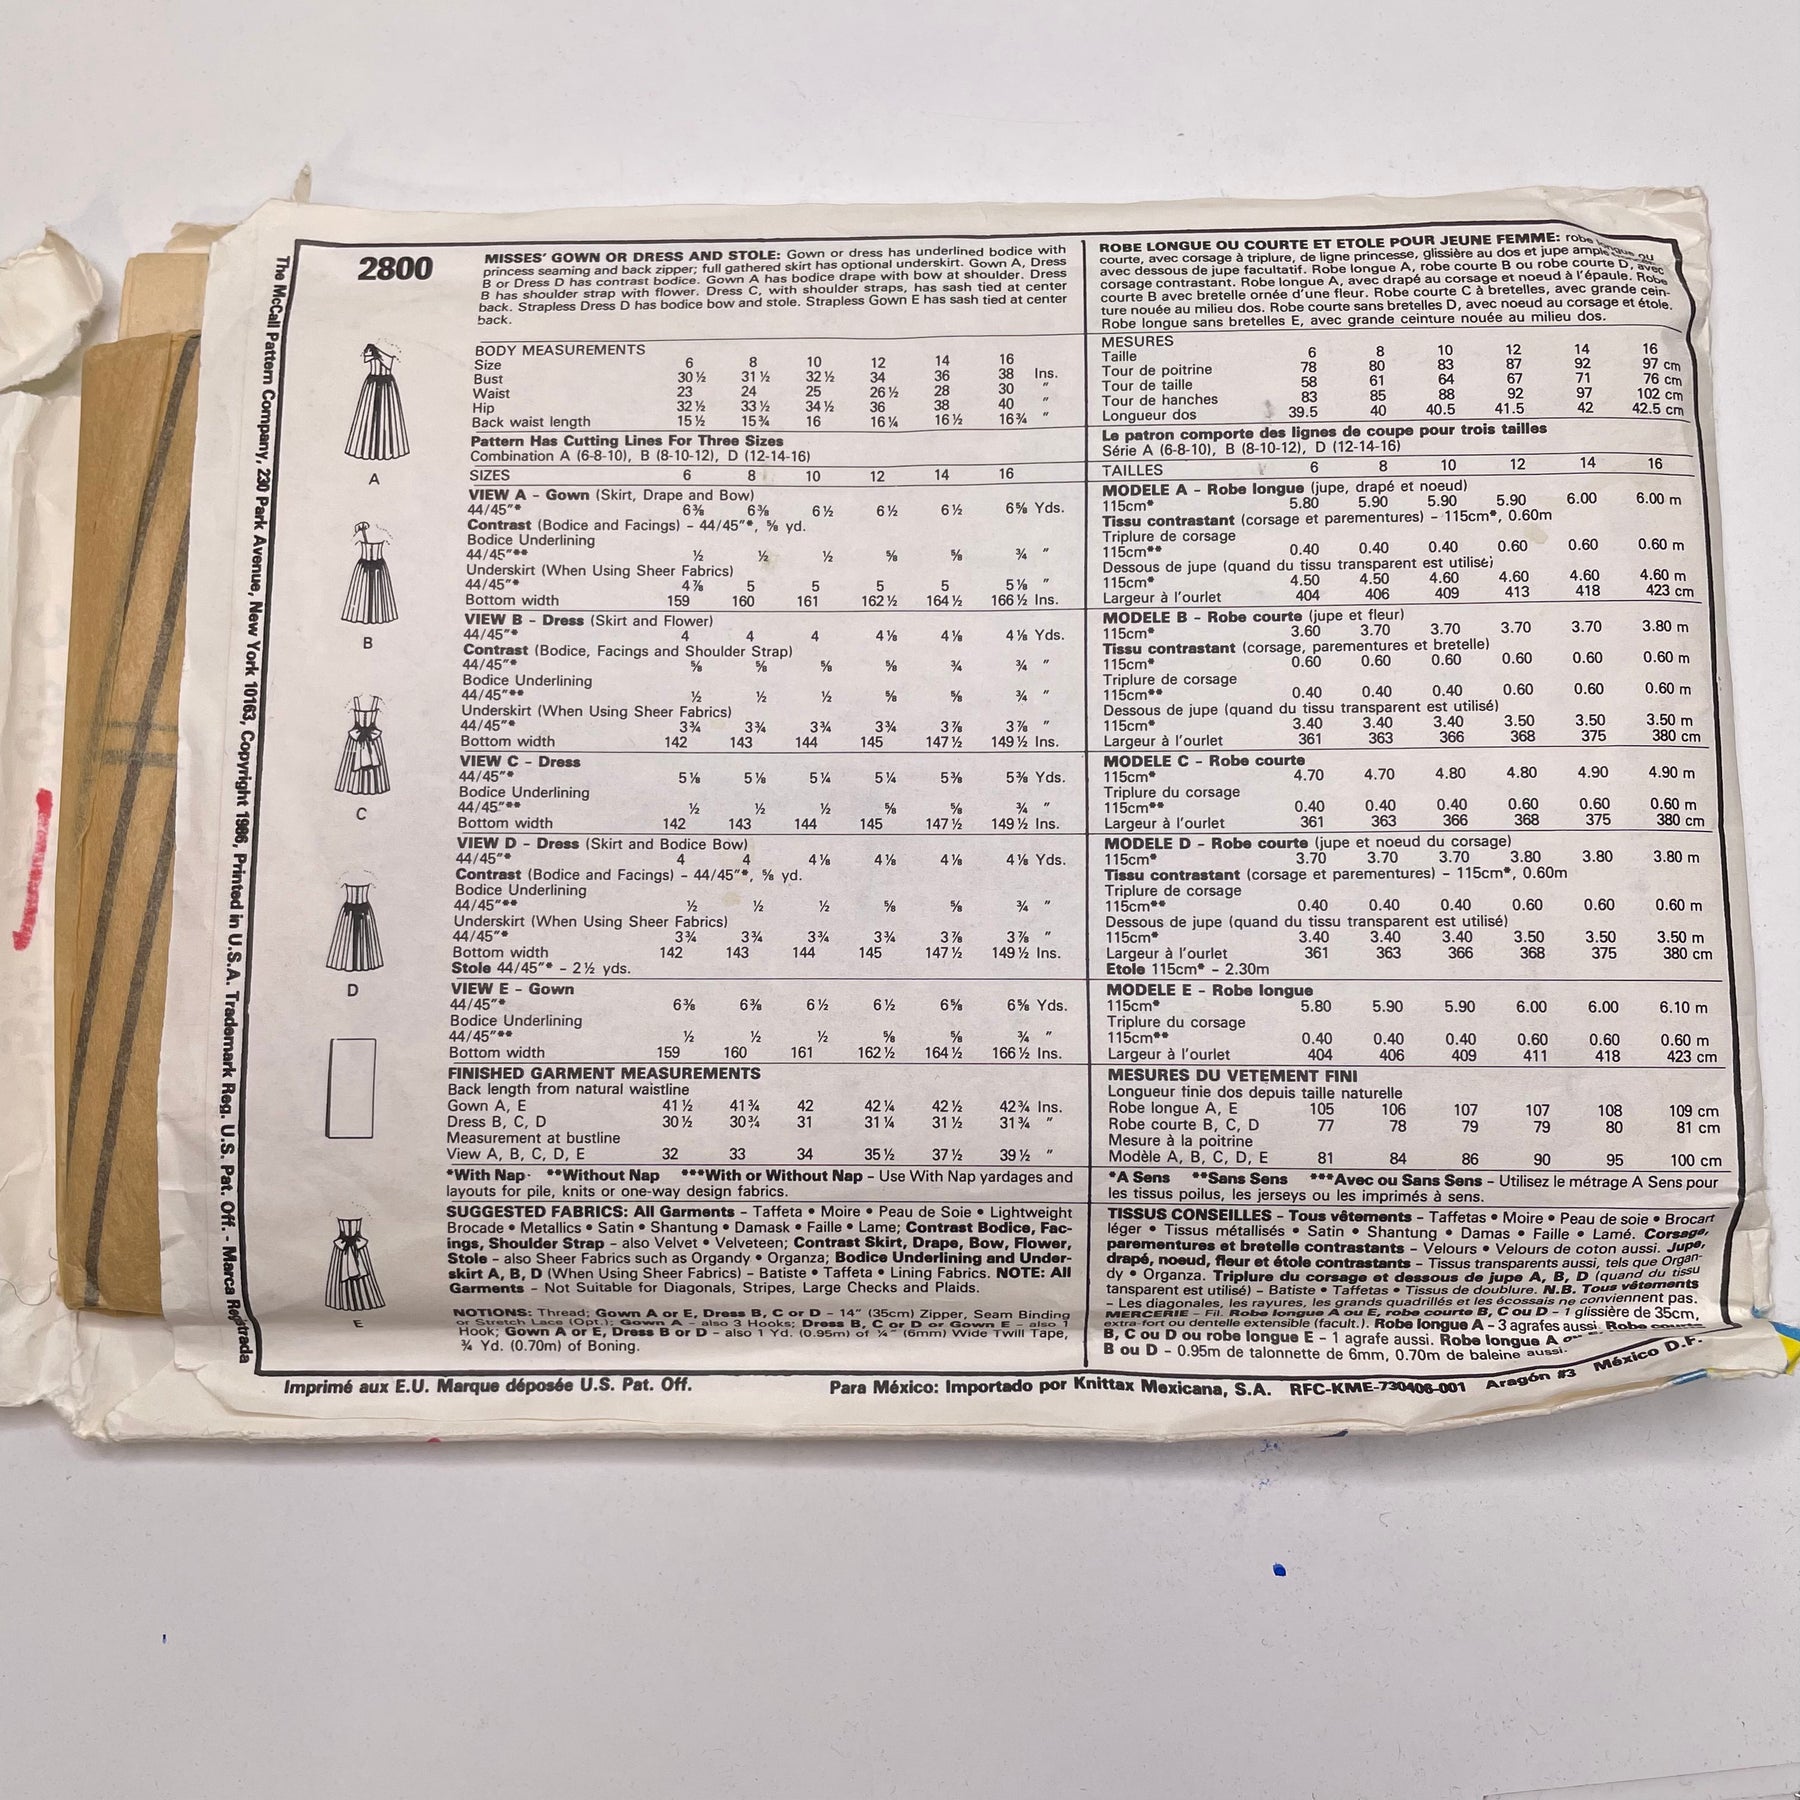 2800
MISSES' GOWN OR DRESS AND STOLE: Gown or dress has underlined bodice with
princess seaming and back zipper; full gathered skirt has optional underskirt. Gown A, Dress
B or Dress D has contrast bodice. Gown A has bodice drape with bow at shoulder. Dress
B has shoulder strap with flower. Dress C, with shoulder straps, has sash tied at center
back. Strapless Dress D has bodice bow and stole. Strapless Gown E has sash tied at center
back.
BODY MEASUREMENTS
Size 6 8 10 12 14 16
Bust 30½ 31½ 32½ 34 36 38 Ins.
Waist 23 24 25 26½ 28 30 "
Hip 32½ 33½ 34½ 36 38 40 "
Back waist length 15½ 15¾ 16 16¼ 16½ 16¾ "
Pattern Has Cutting Lines For Three Sizes
Combination A (6-8-10), B (8-10-12), D (12-14-16)
SIZES 6 8 10 12 14 16
VIEW A - Gown (Skirt, Drape and Bow)
44/45"* 6⅜ 6⅜ 6½ 6½ 6½ 6⅝ Yds.
Contrast (Bodice and Facings) - 44/45"*, ⅝ yd.
Bodice Underlining
44/45"** ½ ½ ½ ⅝ ⅝ ¾ "
Underskirt (When Using Sheer Fabrics)
44/45"* 4⅞ 5 5 5 5 5⅛ "
Bottom width 159 160 161 162½ 164½ 166½ Ins.
VIEW B - Dress (Skirt and Flower)
44/45"* 4 4 4 4⅛ 4⅛ 4⅛ Yds.
Contrast (Bodice, Facings and Shoulder Strap)
44/45"* ⅝ ⅝ ⅝ ⅝ ¾ ¾ "
Bodice Underlining
44/45"** ½ ½ ½ ⅝ ⅝ ¾ "
Underskirt (When Using Sheer Fabrics)
44/45"* 3¾ 3¾ 3¾ 3¾ 3⅞ 3⅞ "
Bottom width 142 143 144 145 147½ 149½ Ins.
VIEW C - Dress
44/45"* 5⅛ 5⅛ 5¼ 5¼ 5⅜ 5⅜ Yds.
Bodice Underlining
44/45"** ½ ½ ½ ⅝ ⅝ ¾ "
Bottom width 142 143 144 145 147½ 149½ Ins.
VIEW D - Dress (Skirt and Bodice Bow)
44/45"* 4 4 4⅛ 4⅛ 4⅛ 4⅛ Yds.
Contrast (Bodice and Facings) - 44/45"*, ⅝ yd.
Bodice Underlining
44/45"** ½ ½ ½ ⅝ ⅝ ¾ "
Underskirt (When Using Sheer Fabrics)
44/45"* 3¾ 3¾ 3¾ 3¾ 3⅞ 3⅞ "
Bottom width 142 143 144 145 147½ 149½ Ins.
Stole 44/45"* - 2½ yds.
VIEW E - Gown
44/45"* 6⅜ 6⅜ 6½ 6½ 6⅝ 6⅝ Yds.
Bodice Underlining
44/45"** ½ ½ ½ ⅝ ⅝ ¾ "
Bottom width 159 160 161 162½ 164½ 166½ Ins.
FINISHED GARMENT MEASUREMENTS
Back length from natural waistline
Gown A, E 41½ 41¾ 42 42¼ 42½ 42¾ Ins.
Dress B, C, D 30½ 30¾ 31 31¼ 31½ 31¾ "
Measurement at bustline
View A, B, C, D, E 32 33 34 35½ 37½ 39½ "
*With Nap **Without Nap ***With or Without Nap - Use With Nap yardages and
layouts for pile, knits or one-way design fabrics.
SUGGESTED FABRICS: All Garments - Taffeta • Moire • Peau de Soie • Lightweight
Brocade • Metallics • Satin • Shantung • Damask • Faille • Lame; Contrast Bodice, Fac-
ings, Shoulder Strap - also Velvet • Velveteen; Contrast Skirt, Drape, Bow, Flower,
Stole - also Sheer Fabrics such as Organdy • Organza; Bodice Underlining and Under-
skirt A, B, D (When Using Sheer Fabrics) - Batiste • Taffeta • Lining Fabrics. NOTE: All
Garments - Not Suitable for Diagonals, Stripes, Large Checks and Plaids.
NOTIONS: Thread; Gown A or E, Dress B, C or D - 14" (35cm) Zipper, Seam Binding
or Stretch Lace (Opt.); Gown A - also 3 Hooks; Dress B, C or D or Gown E - also 1
Hook; Gown A or E, Dress B or D - also 1 Yd. (0.95m) of ¼" (6mm) Wide Twill Tape,
¾ Yd. (0.70m) of Boning.
ROBE LONGUE OU COURTE ET ETOLE POUR JEUNE FEMME: robe longue ou
courte, avec corsage à triplure, de ligne princesse, glissière au dos et jupe ample
avec dessous de jupe facultatif. Robe longue A, robe courte B ou robe courte D, avec
corsage contrastant. Robe longue A, avec drapé au corsage et noeud à l'épaule. Robe
courte B avec bretelle ornée d'une fleur. Robe courte C à bretelles, avec grande cein-
ture nouée au milieu dos. Robe courte sans bretelles D, avec noeud au corsage et étole.
Robe longue sans bretelles E, avec grande ceinture nouée au milieu dos.
MESURES
Taille 6 8 10 12 14 16
Tour de poitrine 78 80 83 87 92 97 cm
Tour de taille 58 61 64 67 71 76 cm
Tour de hanches 83 85 88 92 97 102 cm
Longueur dos 39.5 40 40.5 41.5 42 42.5 cm
Le patron comporte des lignes de coupe pour trois tailles
Série A (6-8-10), B (8-10-12), D (12-14-16)
TAILLES 6 8 10 12 14 16
MODELE A - Robe longue (jupe, drapé et noeud)
115cm* 5.80 5.90 5.90 5.90 6.00 6.00 m
Tissu contrastant (corsage et parementures) - 115cm*, 0.60m
Triplure de corsage
115cm** 0.40 0.40 0.40 0.60 0.60 0.60 m
Dessous de jupe (quand du tissu transparent est utilisé)
115cm* 4.50 4.50 4.60 4.60 4.60 4.60 m
Largeur à l'ourlet 404 406 409 413 418 423 cm
MODELE B - Robe courte (jupe et fleur)
115cm* 3.60 3.70 3.70 3.70 3.70 3.80 m
Tissu contrastant (corsage, parementures et bretelle)
115cm* 0.60 0.60 0.60 0.60 0.60 0.60 m
Triplure de corsage
115cm** 0.40 0.40 0.40 0.60 0.60 0.60 m
Dessous de jupe (quand du tissu transparent est utilisé)
115cm* 3.40 3.40 3.40 3.50 3.50 3.50 m
Largeur à l'ourlet 361 363 366 368 375 380 cm
MODELE C - Robe courte
115cm* 4.70 4.70 4.80 4.80 4.90 4.90 m
Triplure du corsage
115cm** 0.40 0.40 0.40 0.60 0.60 0.60 m
Largeur à l'ourlet 361 363 366 368 375 380 cm
MODELE D - Robe courte (jupe et noeud du corsage)
115cm* 3.70 3.70 3.70 3.80 3.80 3.80 m
Tissu contrastant (corsage et parementures) - 115cm*, 0.60m
Triplure de corsage
115cm** 0.40 0.40 0.40 0.60 0.60 0.60 m
Dessous de jupe (quand du tissu transparent est utilisé)
115cm* 3.40 3.40 3.40 3.50 3.50 3.50 m
Largeur à l'ourlet 361 363 366 368 375 380 cm
Etole 115cm* - 2.30m
MODELE E - Robe longue
115cm* 5.80 5.90 5.90 6.00 6.00 6.10 m
Triplure du corsage
115cm** 0.40 0.40 0.40 0.60 0.60 0.60 m
Largeur à l'ourlet 404 406 409 411 418 423 cm
MESURES DU VETEMENT FINI
Longueur finie dos depuis taille naturelle
Robe longue A, E 105 106 107 107 108 109 cm
Robe courte B, C, D 77 78 79 79 80 81 cm
Mesure à la poitrine
Modèle A, B, C, D, E 81 84 86 90 95 100 cm
*A Sens **Sans Sens ***Avec ou Sans Sens - Utilisez le métrage A Sens pour
les tissus poilus, les jerseys ou les imprimés à sens.
TISSUS CONSEILLES - Tous vêtements - Taffetas • Moire • Peau de soie • Brocart
léger • Tissus métallisés • Satin • Shantung • Damas • Faille • Lamé. Corsage,
parementures et bretelle contrastants - Velours • Velours de coton aussi. Jupe,
drapé, noeud, fleur et étole contrastants - Tissus transparents aussi, tels que Organ-
dy • Organza. Triplure du corsage et dessous de jupe A, B, D (quand du tissu
tansparent est utilisé) - Batiste • Taffetas • Tissus de doublure. N.B. Tous vêtements
- Les diagonales, les rayures, les grands quadrillés et les écossais ne conviennent pas.
MERCERIE - Fil. Robe longue A ou E, robe courte B, C ou D - 1 glissière de 35cm,
extra-fort ou dentelle extensible (facult.). Robe longue A - 3 agrafes aussi. Robe courte
B, C ou D ou robe longue E - 1 agrafe aussi. Robe longue A ou E,
B ou D - 0.95m de talonnette de 6mm, 0.70m de baleine aussi.
A
B
C
D
E
The McCall Pattern Company, 230 Park Avenue, New York 10163, Copyright 1986, Printed in U.S.A. Trademark Reg. U.S. Pat. Off. - Marca Registrada
Imprimé aux E.U. Marque déposée U.S. Pat. Off.
Para México: Importado por Knittax Mexicana, S.A. RFC-KME-730406-001 Aragón #3 México D.F.